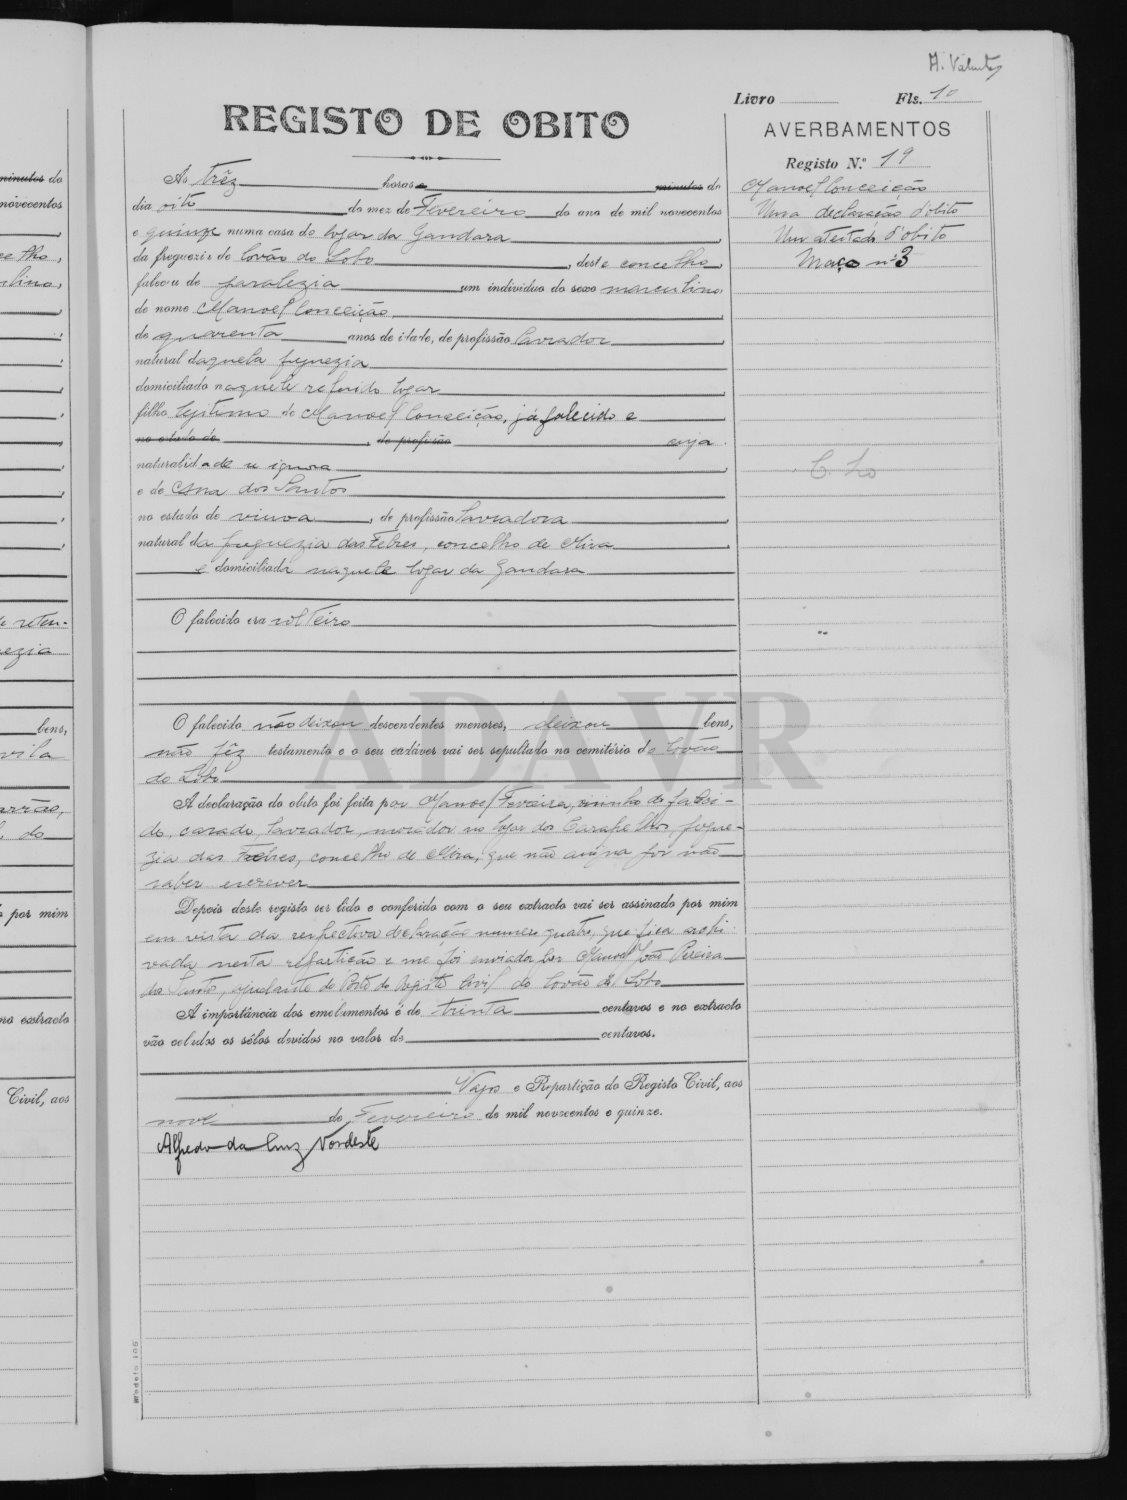 A. Valente
Livro Fls. 10
REGISTO DE OBITO
AVERBAMENTOS
Registo N.º 19
Manoel Conceição
Uma declaração d'obito
Um atestado d'obito
Maço nº 3
minutos do
novecentos
bens,
vila
do
por mim
no extracto
Civil, aos
As trêz horas e minutos do
dia oito do mez de Fevereiro do ano de mil novecentos
e quinze numa casa do logar da Gandara
da freguezia de Covão do Lobo, deste concelho,
faleceu de paralezia um individuo do sexo masculino,
de nome Manoel Conceição
de quarenta anos de idade, de profissão lavrador,
natural daquela freguezia
domiciliado naquele referido logar,
filho legitimo de Manoel Conceição, já falecido e
no estado de, de profissão cuja
naturalidade se ignora,
e de Ana dos Santos
no estado de viuva, de profissão lavradora,
natural da freguezia das Febres, concelho de Mira,
e domiciliada naquele logar da Gandara
O falecido era solteiro
O falecido não deixou descendentes menores, deixou bens,
não fêz testamento e o seu cadáver vai ser sepultado no cemitério de Covão
do Lobo
A declaração do obito foi feita por Manoel Ferreira, visinho do faleci-
do, casado, lavrador, morador no logar dos Carapelhos, fregue-
zia das Febres, concelho de Mira, que não assina por não
saber escrever
Depois deste registo ser lido e conferido com o seu extracto vai ser assinado por mim
em vista da respectiva declaração numero quatro, que fica archi-
vada nesta repartição e me foi enviada por Manoel João Pereira
dos Santos, ajudante do Posto do Registo Civil do Covão do Lobo
A importância dos emolumentos é de trinta centavos e no extracto
vão colados os sêlos devidos no valor de centavos.
Vagos e Repartição do Registo Civil, aos
nove de Fevereiro de mil novecentos e quinze.
Alfredo da Cruz Nordeste
ADAVR
Modelo 105